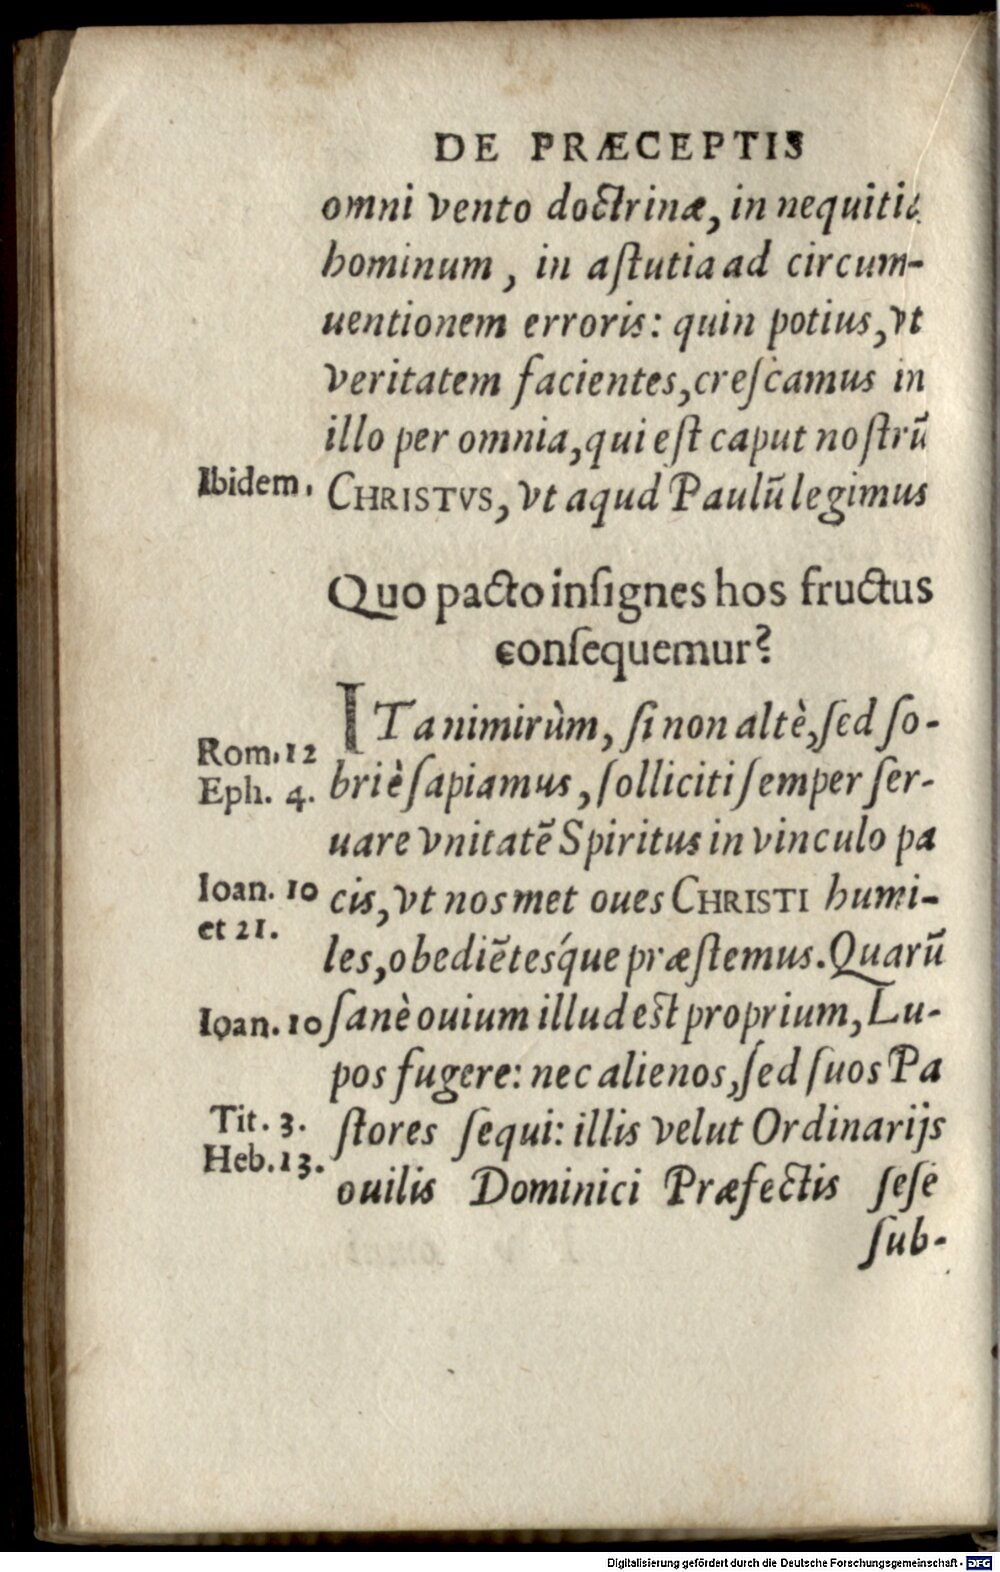 DE PRÆCEPTIS
omni vento doctrinæ, in nequitia
hominum, in aſtutia ad circum-
uentionem erroris: quin potius, vt
veritatem facientes, creſcamus in
illo per omnia, qui eſt caput noſtrū
Ibidem. CHRISTVS, vt aqud Paulū legimus
Quo pacto inſignes hos fructus
conſequemur?
ITa nimirùm, ſi non altè, ſed ſo-
Rom. 12
Eph. 4. briè ſapiamus, ſolliciti ſemper ſer-
uare vnitatē Spiritus in vinculo pa
Ioan. 10 cis, vt noſmet oues CHRISTI humi-
et 21.
les, obediētesq́ue præſtemus. Quarū
Ioan. 10 ſanè ouium illud eſt proprium, Lu-
pos fugere: nec alienos, ſed ſuos Pa
Tit. 3. ſtores ſequi: illis velut Ordinarijs
Heb. 13. ouilis Dominici Præfectis ſeſe
ſub-
Digitalisierung gefördert durch die Deutsche Forschungsgemeinschaft - DFG